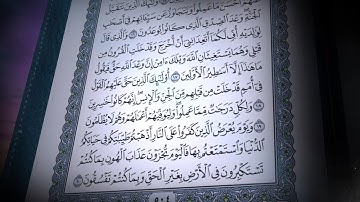 الْجَنَّةِ وَعْدَ الصِّدْقِ الَّذِي كَانُوا يُوعَدُونَ ۝١٦ وَالَّذِي قَالَ
لِوَالِدَيْهِ أُفٍّ لَكُمَا أَتَعِدَانِنِي أَنْ أُخْرَجَ وَقَدْ خَلَتِ الْقُرُونُ مِنْ
قَبْلِي وَهُمَا يَسْتَغِيثَانِ اللَّهَ وَيْلَكَ آمِنْ إِنَّ وَعْدَ اللَّهِ حَقٌّ فَيَقُولُ
مَا هَذَا إِلَّا أَسَاطِيرُ الْأَوَّلِينَ ۝١٧ أُولَئِكَ الَّذِينَ حَقَّ عَلَيْهِمُ الْقَوْلُ
فِي أُمَمٍ قَدْ خَلَتْ مِنْ قَبْلِهِمْ مِنَ الْجِنِّ وَالْإِنْسِ إِنَّهُمْ كَانُوا خَاسِرِينَ
۝١٨ وَلِكُلٍّ دَرَجَاتٌ مِمَّا عَمِلُوا وَلِيُوَفِّيَهُمْ أَعْمَالَهُمْ وَهُمْ لَا يُظْلَمُونَ
۝١٩ وَيَوْمَ يُعْرَضُ الَّذِينَ كَفَرُوا عَلَى النَّارِ أَذْهَبْتُمْ طَيِّبَاتِكُمْ فِي حَيَاتِكُمُ
الدُّنْيَا وَاسْتَمْتَعْتُمْ بِهَا فَالْيَوْمَ تُجْزَوْنَ عَذَابَ الْهُونِ بِمَا كُنْتُمْ
تَسْتَكْبِرُونَ فِي الْأَرْضِ بِغَيْرِ الْحَقِّ وَبِمَا كُنْتُمْ تَفْسُقُونَ ۝٢٠
٥٠٤